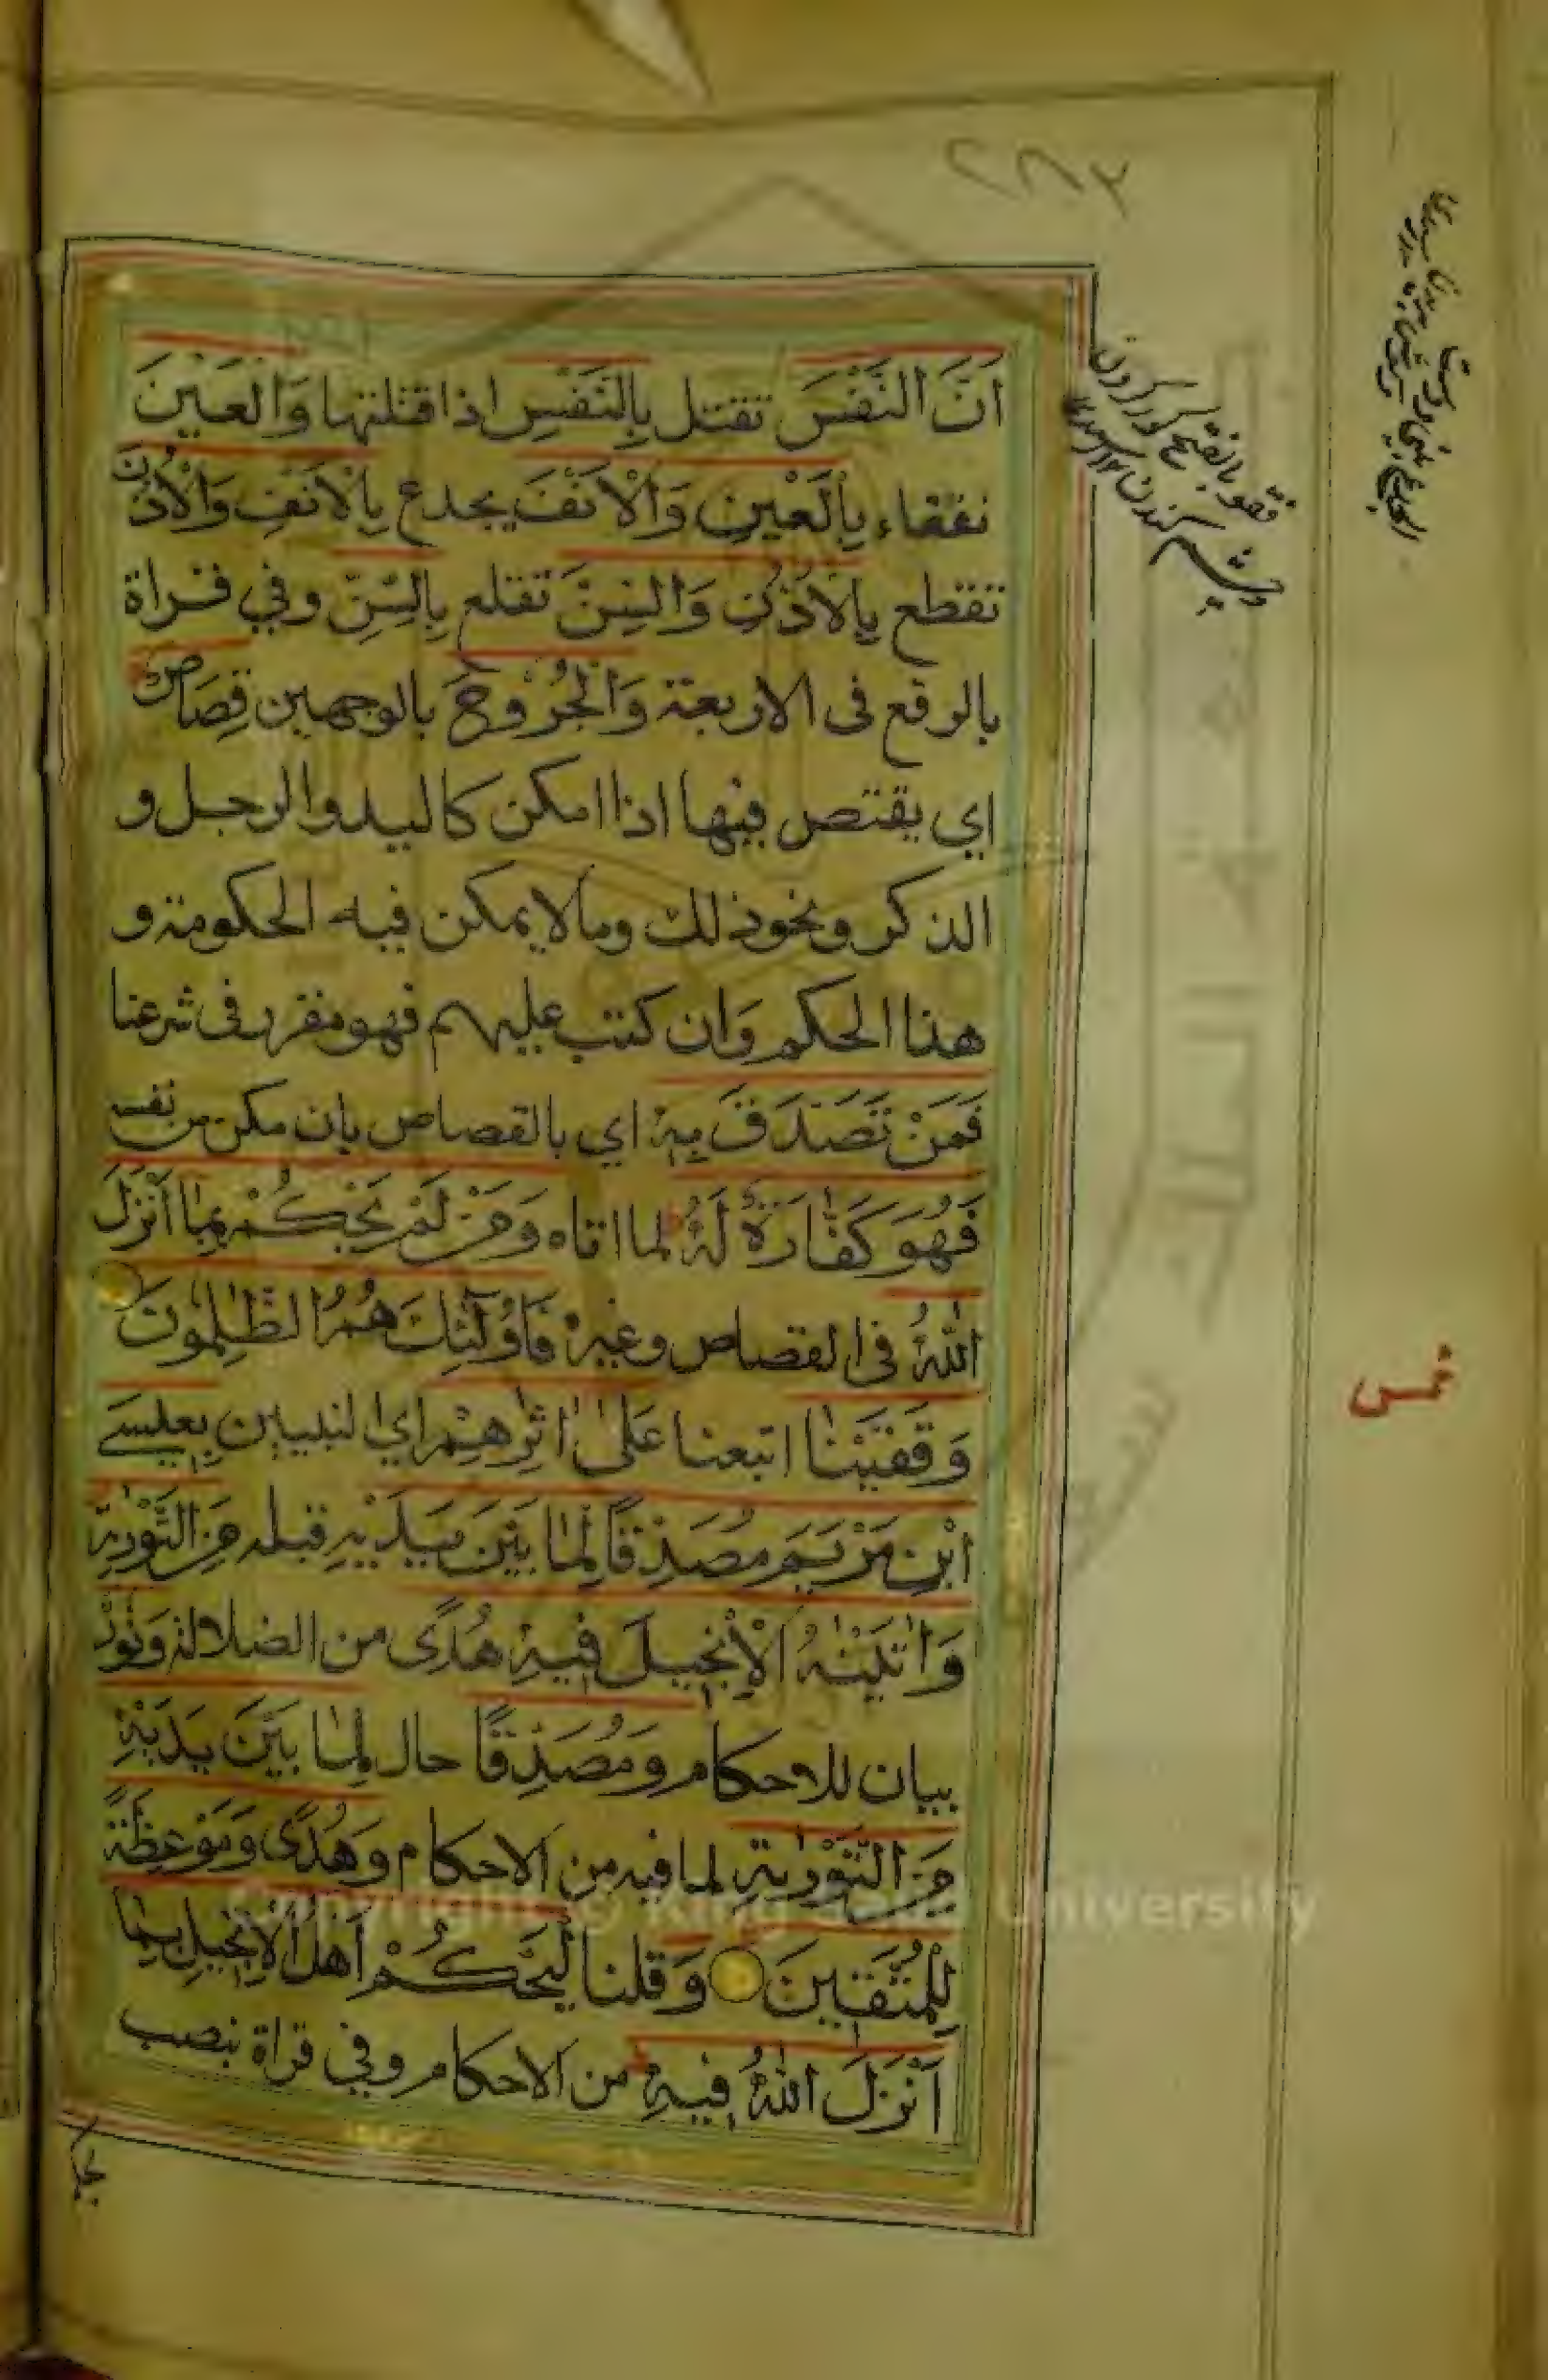 ٢٨٢
اَنَّ النَّفْسَ تقتل بِالنَّفْسِ اذا قتلتها وَالْعَيْنَ
تفقاء بِالْعَيْنِ وَالْاَنْفَ يجدع بِالْاَنْفِ وَالْاُذُنَ
تقطع بِالْاُذُنِ وَالسِّنَّ تقلع بِالسِّنِّ وفي قراة
بالرفع فى الاربعة وَالْجُرُوحَ بالوجهين قِصَاصٌ
اي يقتص فيها اذا امكن كاليد والرجل و
الذكر ونحو ذلك وما لا يمكن فيه الحكومة و
هذا الحكم وَان كتب عليهم فهو مقرر فى شرعنا
فَمَنْ تَصَدَّقَ بِهٖ اي بالقصاص بان مكن من نفسه
فَهُوَ كَفَّارَةٌ لَهُ لما اتاه وَمَنْ لَمْ يَحْكُمْ بِمَا اَنْزَلَ
اللّٰهُ فى القصاص وغيره فَاُولٰٓئِكَ هُمُ الظّٰلِمُونَ
وَقَفَّيْنَا اتبعنا عَلٰى اٰثٰرِهِمْ اي النبيين بِعِيسَى
ابْنِ مَرْيَمَ مُصَدِّقًا لِمَا بَيْنَ يَدَيْهِ قبله مِنَ التَّوْرٰيةِ
وَاٰتَيْنٰهُ الْاِنْجِيلَ فِيهِ هُدًى من الضلالة وَنُورٌ
بيان للاحكام وَمُصَدِّقًا حال لِمَا بَيْنَ يَدَيْهِ
مِنَ التَّوْرٰيةِ لما فيه من الاحكام وَهُدًى وَمَوْعِظَةً
لِلْمُتَّقِينَ وَ قلنا لْيَحْكُمْ اَهْلُ الْاِنْجِيلِ بِمَا
اَنْزَلَ اللّٰهُ فِيهِ من الاحكام وفي قراة بنصب
يحكم
فقو بالفتح كور كردن
چشم كندن
خمس
Copyright © King Saud University